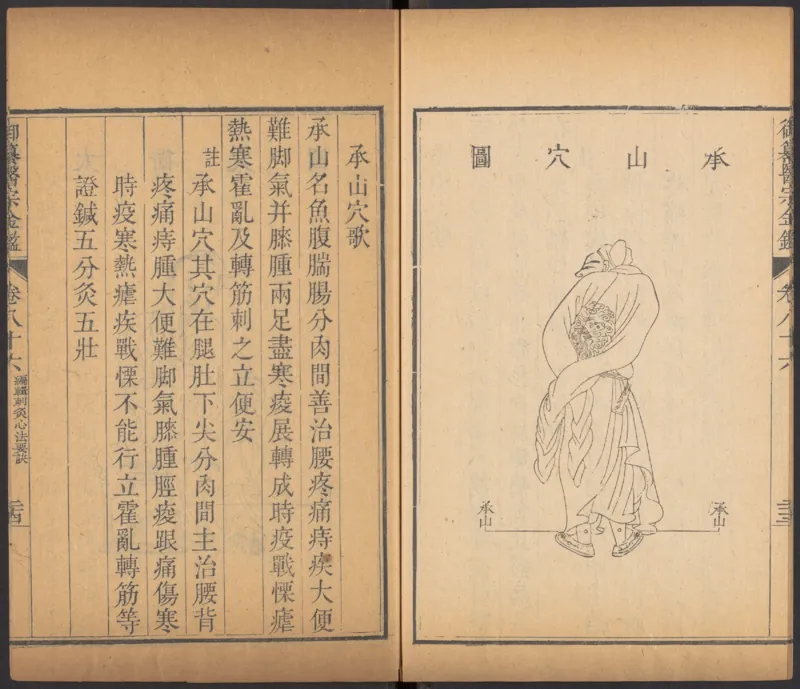 御纂醫宗金鑑
卷八十六
二十三
承山穴圖
承山
承山
承山穴歌
承山名魚腹腨腸分肉間善治腰疼痛痔疾大便
難脚氣并膝腫兩足盡寒痠展轉成時疫戰慄瘧
熱寒霍亂及轉筋刺之立便安
註承山穴其穴在腿肚下尖分肉間主治腰背
疼痛痔腫大便難脚氣膝腫脛痠跟痛傷寒
時疫寒熱瘧疾戰慄不能行立霍亂轉筋等
證鍼五分灸五壯
御纂醫宗金鑑
卷八十六
編輯刺灸心法要訣
二十四